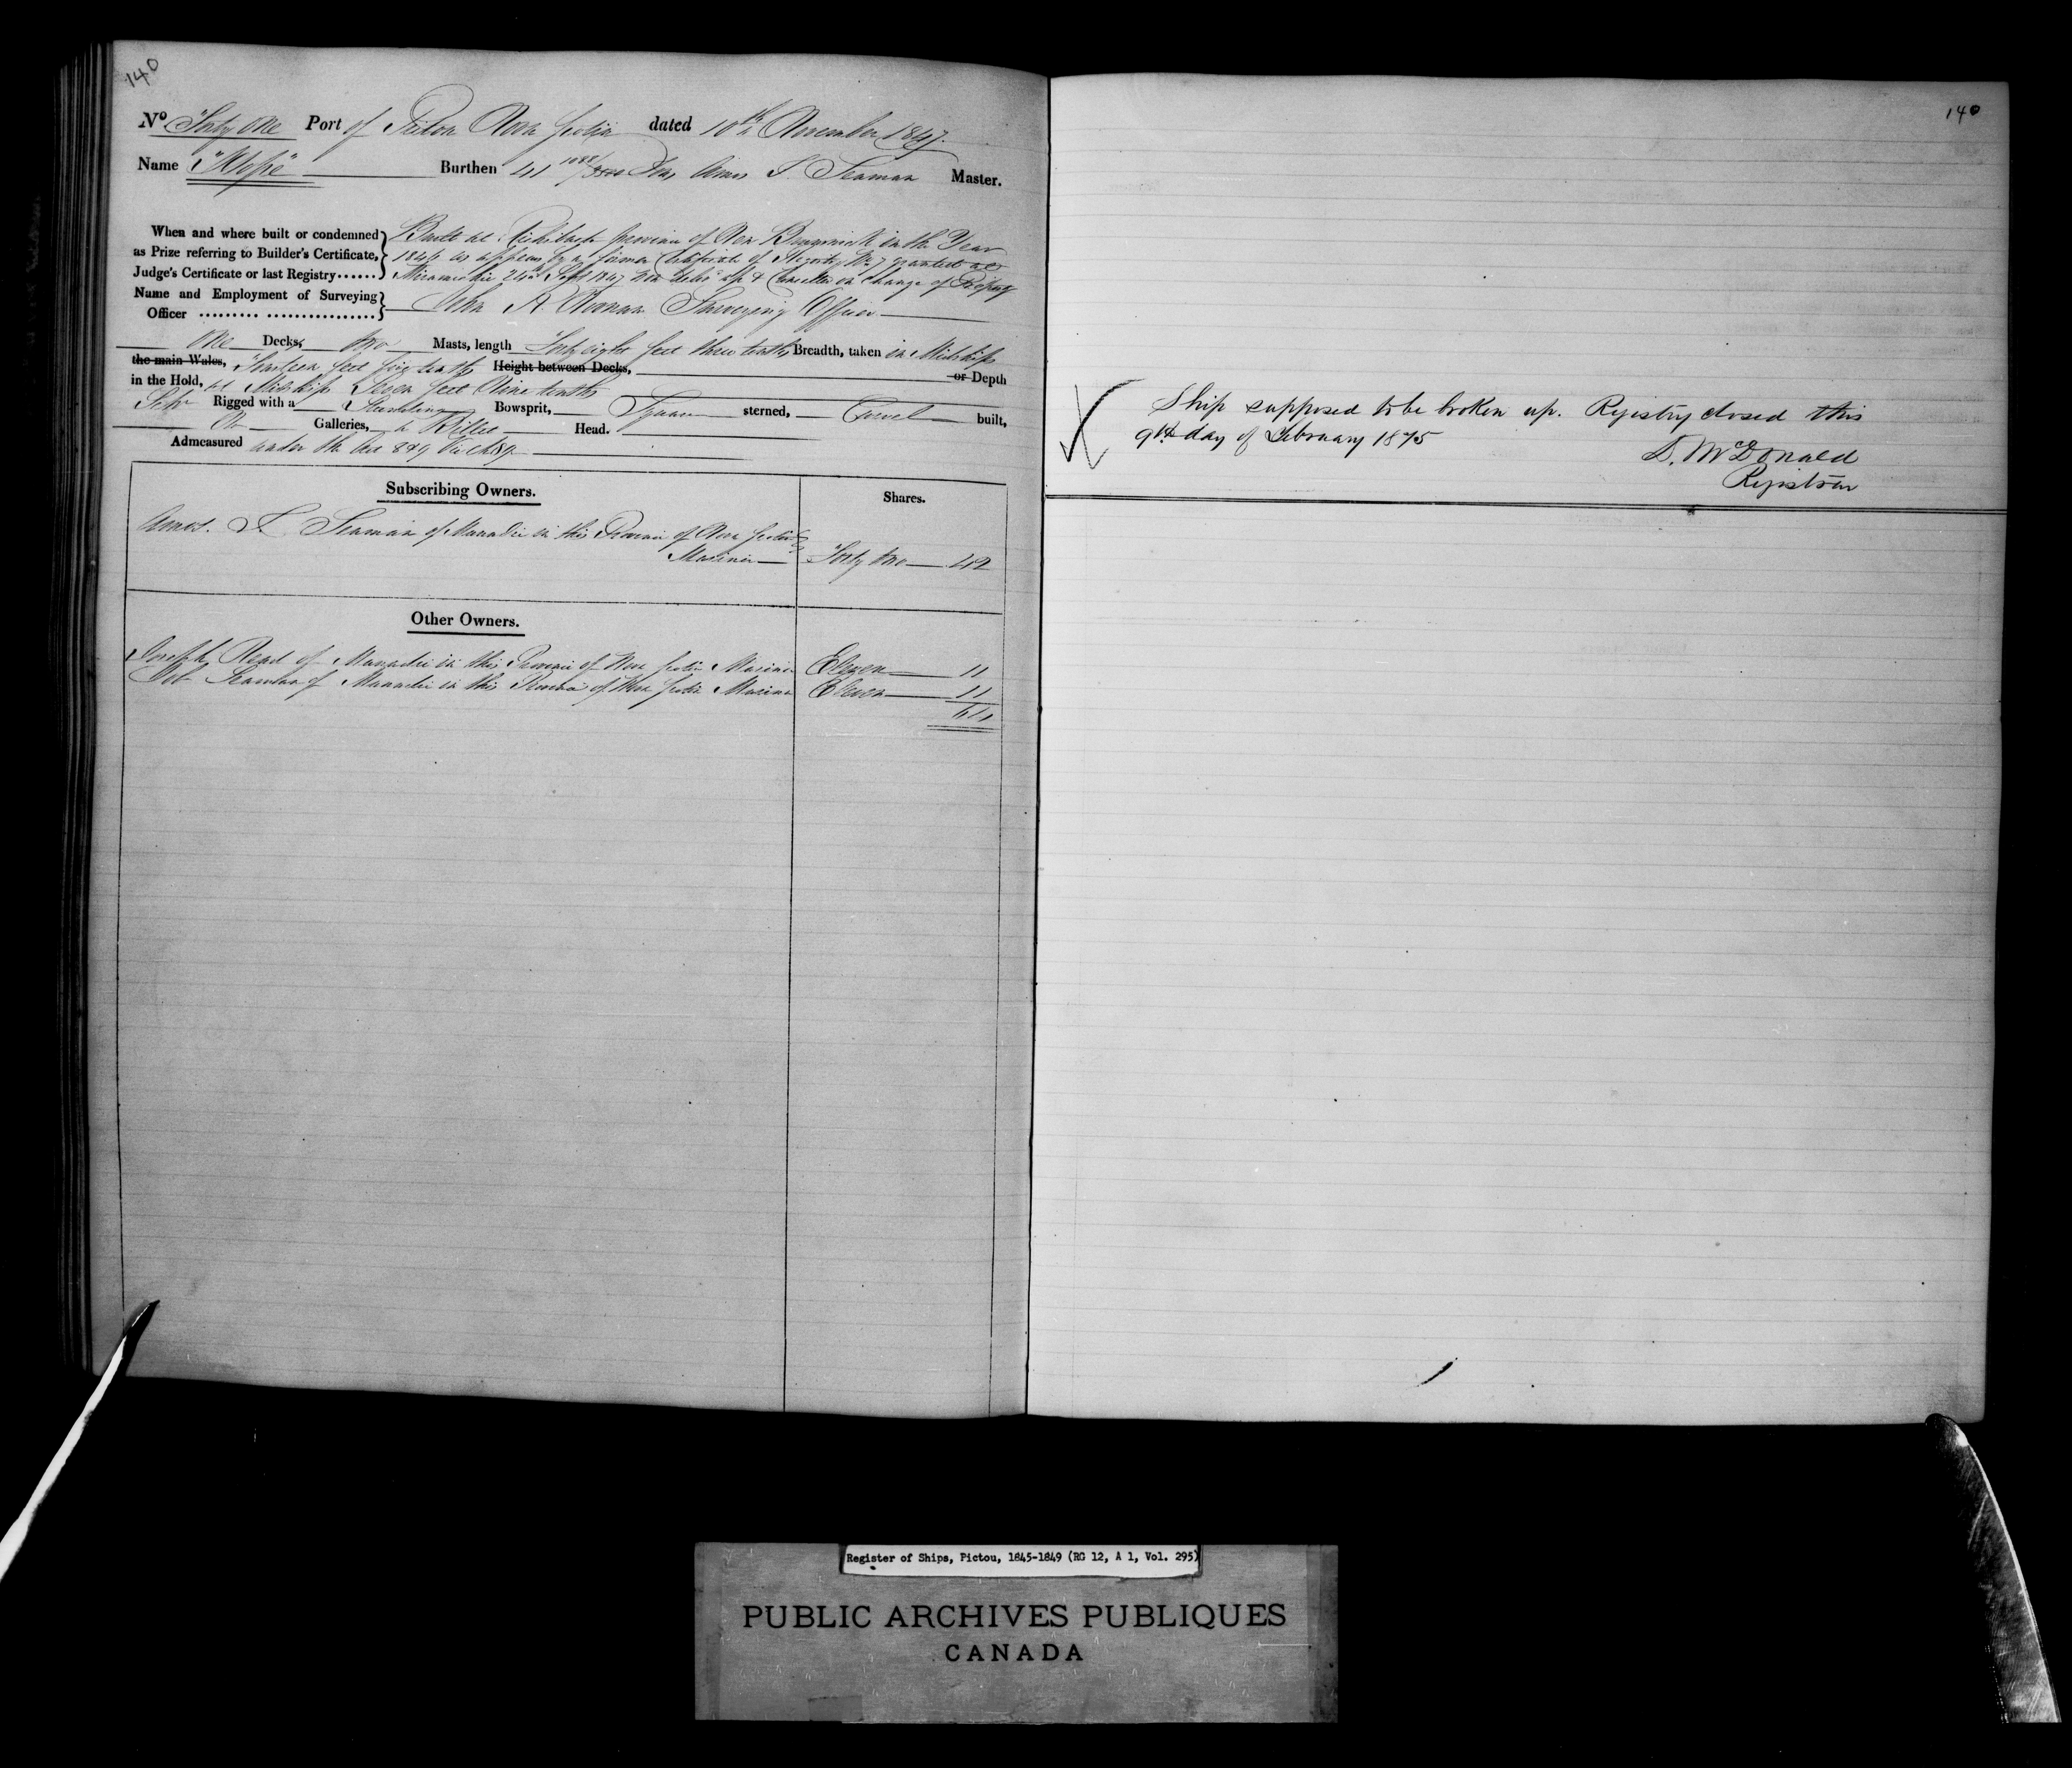 140
No Forty One Port of Pictou Nova Scotia dated 10th November 1847.
Name "Hope" Burthen 41 /3500 Tons Amos S. Seaman Master.
When and where built or condemned
as Prize referring to Builder's Certificate,
Judge's Certificate or last Registry......
Built at Richibucto province of New Brunswick in the Year
1846 as appears by a former Certificate of Registry No 7 granted at
Miramichi 24th Sept 1847 now delivd up & Cancelled on change of Property
Name and Employment of Surveying
Officer ......... ................
John A. Noonan Surveying Officer
One Decks, two Masts, length Forty eight feet three tenths Breadth, taken in Midships
the main Wales, feet tenths Height between Decks, or Depth
in the Hold, at Midships Seven feet Nine tenths
Schr Rigged with a Standing Bowsprit, Square sterned, Carvel built,
No Galleries, a Billet Head.
Admeasured under the Act 8 & 9 Vic Ch 89
Subscribing Owners.
Shares.
Amos. S. Seaman of in this Province of Nova Scotia
Mariner Forty two 42
Other Owners.
Joseph Read of in this Province of Nova Scotia Mariner Eleven 11
Seaman of in this Province of Nova Scotia Mariner Eleven 11
64
140
Ship supposed to be broken up. Registry closed this
9th day of February 1875
D. McDonald
Registrar
Register of Ships, Pictou, 1845-1849 (RG 12, A 1, Vol. 295)
PUBLIC ARCHIVES PUBLIQUES
CANADA